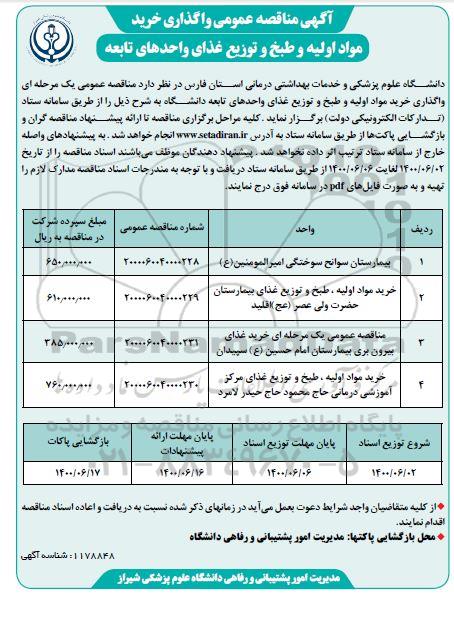 آگهی مناقصه عمومی واگذاری خرید
مواد اولیه و طبخ و توزیع غذای واحدهای تابعه
دانشگاه علوم پزشکی و خدمات بهداشتی درمانی استان فارس در نظر دارد مناقصه عمومی یک مرحله ای
واگذاری خرید مواد اولیه و طبخ و توزیع غذای واحدهای تابعه دانشگاه به شرح ذیل را از طریق سامانه ستاد
(تدارکات الکترونیکی دولت) برگزار نماید . کلیه مراحل برگزاری مناقصه تا ارائه پیشنهاد مناقصه گران و
بازگشایی پاکت‌ها از طریق سامانه ستاد به آدرس www.setadiran.ir انجام خواهد شد . به پیشنهادهای واصله
خارج از سامانه ستاد ترتیب اثر داده نخواهد شد . پیشنهاد دهندگان موظف می‌باشند اسناد مناقصه را از تاریخ
۱۴۰۰/۰۶/۰۲ لغایت ۱۴۰۰/۰۶/۰۶ از طریق سامانه ستاد دریافت و با توجه به مندرجات اسناد مناقصه مدارک لازم را
تهیه و به صورت فایل‌های pdf در سامانه فوق درج نمایند.
ردیف واحد شماره مناقصه عمومی مبلغ سپرده شرکت در مناقصه به ریال
۱ بیمارستان سوانح سوختگی امیرالمومنین(ع) ۲۰۰۰۰۶۰۰۴۰۰۰۰۲۲۸ ۶۵۰,۰۰۰,۰۰۰
۲ خرید مواد اولیه ، طبخ و توزیع غذای بیمارستان حضرت ولی عصر (عج)اقلید ۲۰۰۰۰۶۰۰۴۰۰۰۰۲۲۹ ۶۱۰,۰۰۰,۰۰۰
۳ مناقصه عمومی یک مرحله ای خرید غذای بیرون بری بیمارستان امام حسین (ع) سپیدان ۲۰۰۰۰۶۰۰۴۰۰۰۰۲۳۱ ۳۸۵,۰۰۰,۰۰۰
۴ خرید مواد اولیه ، طبخ و توزیع غذای مرکز آموزشی درمانی حاج محمود حاج حیدر لامرد ۲۰۰۰۰۶۰۰۴۰۰۰۰۲۳۰ ۷۶۰,۰۰۰,۰۰۰
شروع توزیع اسناد پایان مهلت توزیع اسناد پایان مهلت ارائه پیشنهادات بازگشایی پاکات
۱۴۰۰/۰۶/۰۲ ۱۴۰۰/۰۶/۰۶ ۱۴۰۰/۰۶/۱۶ ۱۴۰۰/۰۶/۱۷
از کلیه متقاضیان واجد شرایط دعوت بعمل می‌آید در زمانهای ذکر شده نسبت به دریافت و اعاده اسناد مناقصه
اقدام نمایند.
محل بازگشایی پاکتها: مدیریت امور پشتیبانی و رفاهی دانشگاه
شناسه آگهی :۱۱۷۸۸۴۸
مدیریت امور پشتیبانی و رفاهی دانشگاه علوم پزشکی شیراز